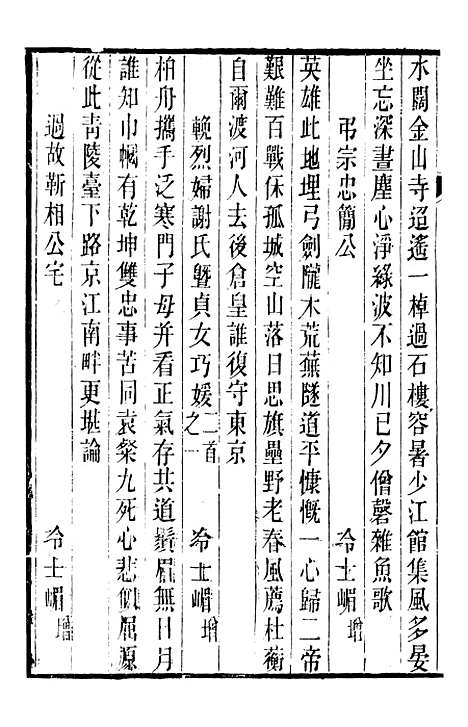 水闊金山寺迢遙一棹過石樓容暑少江館集風多晏
坐忘深晝塵心淨綠波不知川已夕僧磬雜魚歌
弔宗忠簡公 冷士嵋增
英雄此地埋弓劍隴木荒蕪隧道平慷慨一心歸二帝
艱難百戰保孤城空山落日思旗壘野老春風薦杜蘅
自爾渡河人去後倉皇誰復守東京
輓烈婦謝氏暨貞女巧媛二首之一 冷士嵋增
柏舟攜手泛寒門子母并看正氣存共道鬚眉無日月
誰知巾幗有乾坤雙忠事苦同袁粲九死心悲似屈原
從此靑陵臺下路京江南畔更堪論
過故靳相公宅 冷士嵋增